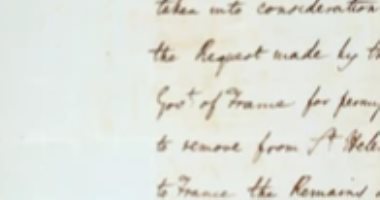 taken into consideration
the Request made by t
Govt. of France for permi
to remove from St Hele
to France the Remains